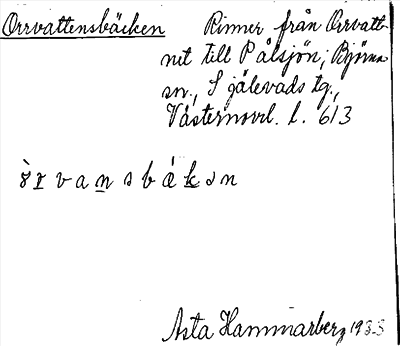 Orrvattensbäcken
Rinner från Orrvatt-
net till Pålsjön, Björna
sn., Själevads tg.,
Västernorrl. l. 613
ò̀r̲van̲sbák̲ən
Asta Hammarberg 1935